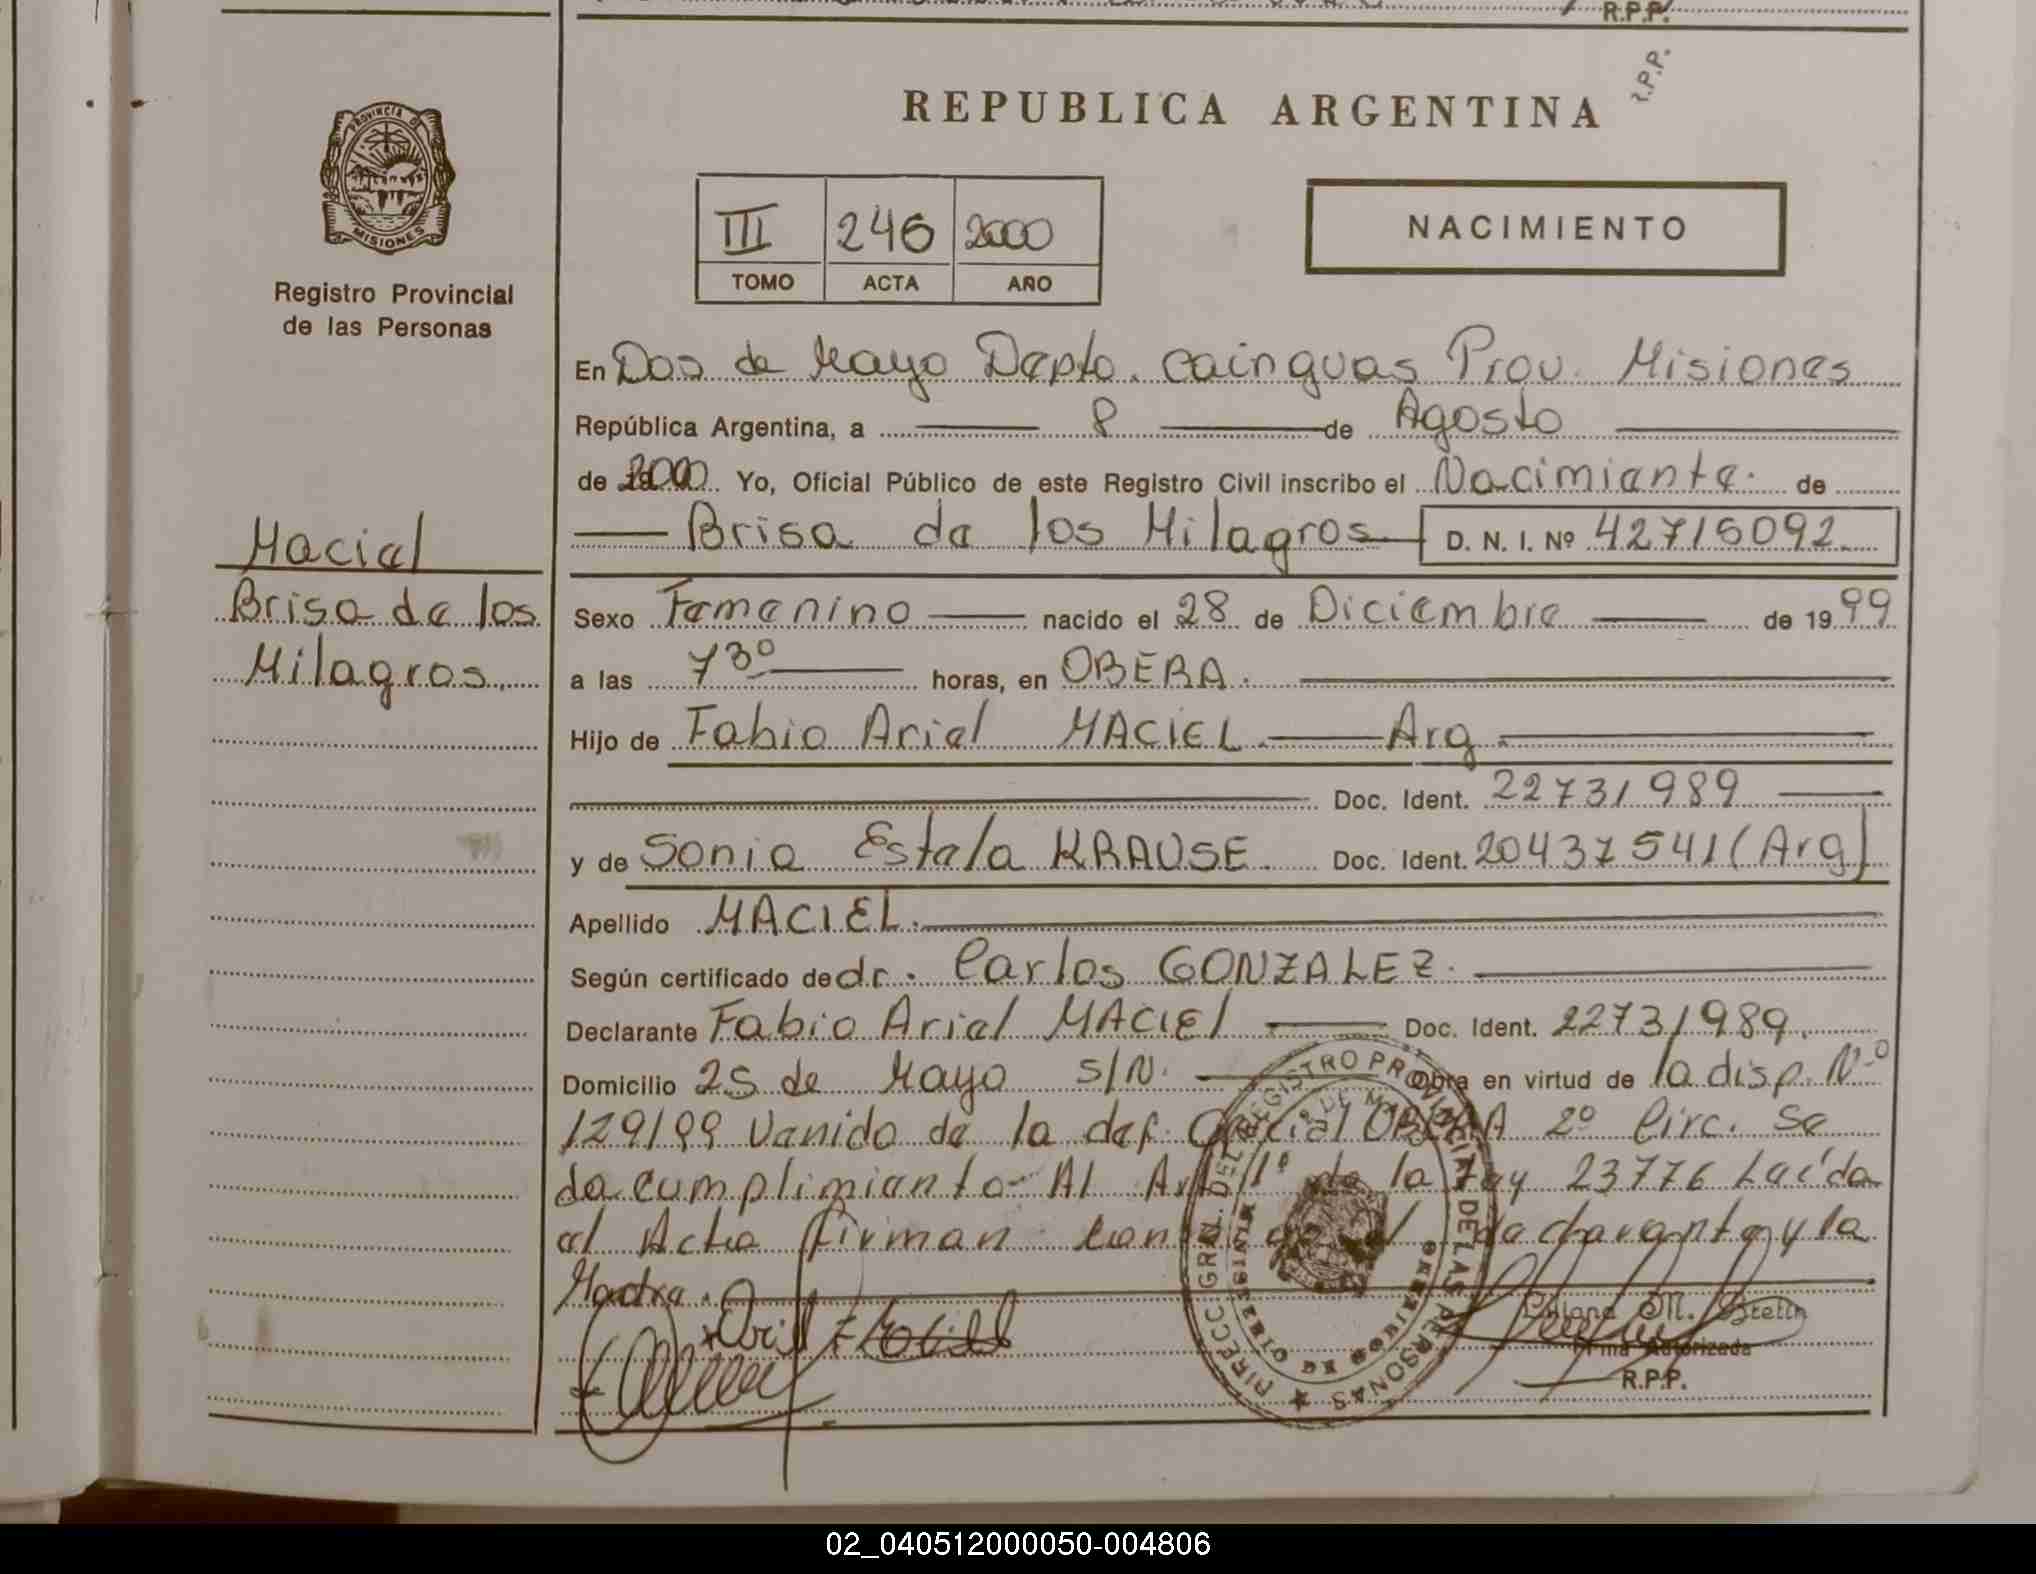 R.P.P.
R.P.P.
REPUBLICA ARGENTINA
PROVINCIA DE
MISIONES
Registro Provincial
de las Personas
III 246 2000
TOMO ACTA AÑO
NACIMIENTO
En Dos de Mayo Depto. cainguas Prov. Misiones
República Argentina, a 8 de Agosto
de 2000 Yo, Oficial Público de este Registro Civil inscribo el Nacimiento de
Brisa de los Milagros D. N. I. Nº 42715092
Maciel
Brisa de los
Milagros
Sexo Femenino nacido el 28 de Diciembre de 1999
a las 7 30 horas, en OBERA.
Hijo de Fabio Ariel MACIEL Arg.
Doc. Ident. 22731989
y de Sonia Estela KRAUSE. Doc. Ident. 20437541 (Arg)
Apellido MACIEL.
Según certificado de dr. Carlos GONZALEZ.
Declarante Fabio Ariel MACIEL Doc. Ident. 22731989.
Domicilio 25 de Mayo S/N. Obra en virtud de la disp. Nº
129/99 Venido de la def. Oficial OBERA 2º Circ. Se
da cumplimiento Al Art. 11º de la Ley 23776 Leída
el Acta firman el declarante y la
Madre.
DIRECC GRAL. DEL REGISTRO PROVINCIAL DE LAS PERSONAS
M. Stelin
Firma Autorizada
R.P.P.
02_040512000050-004806